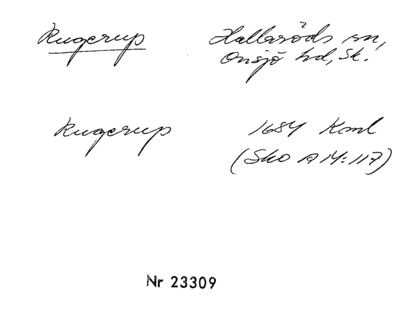 Rugerup Hallaröds sn,
Onsjö hd, Sk.
Rugerup 1684 Kml
(Sko A 14:117)
Nr 23309